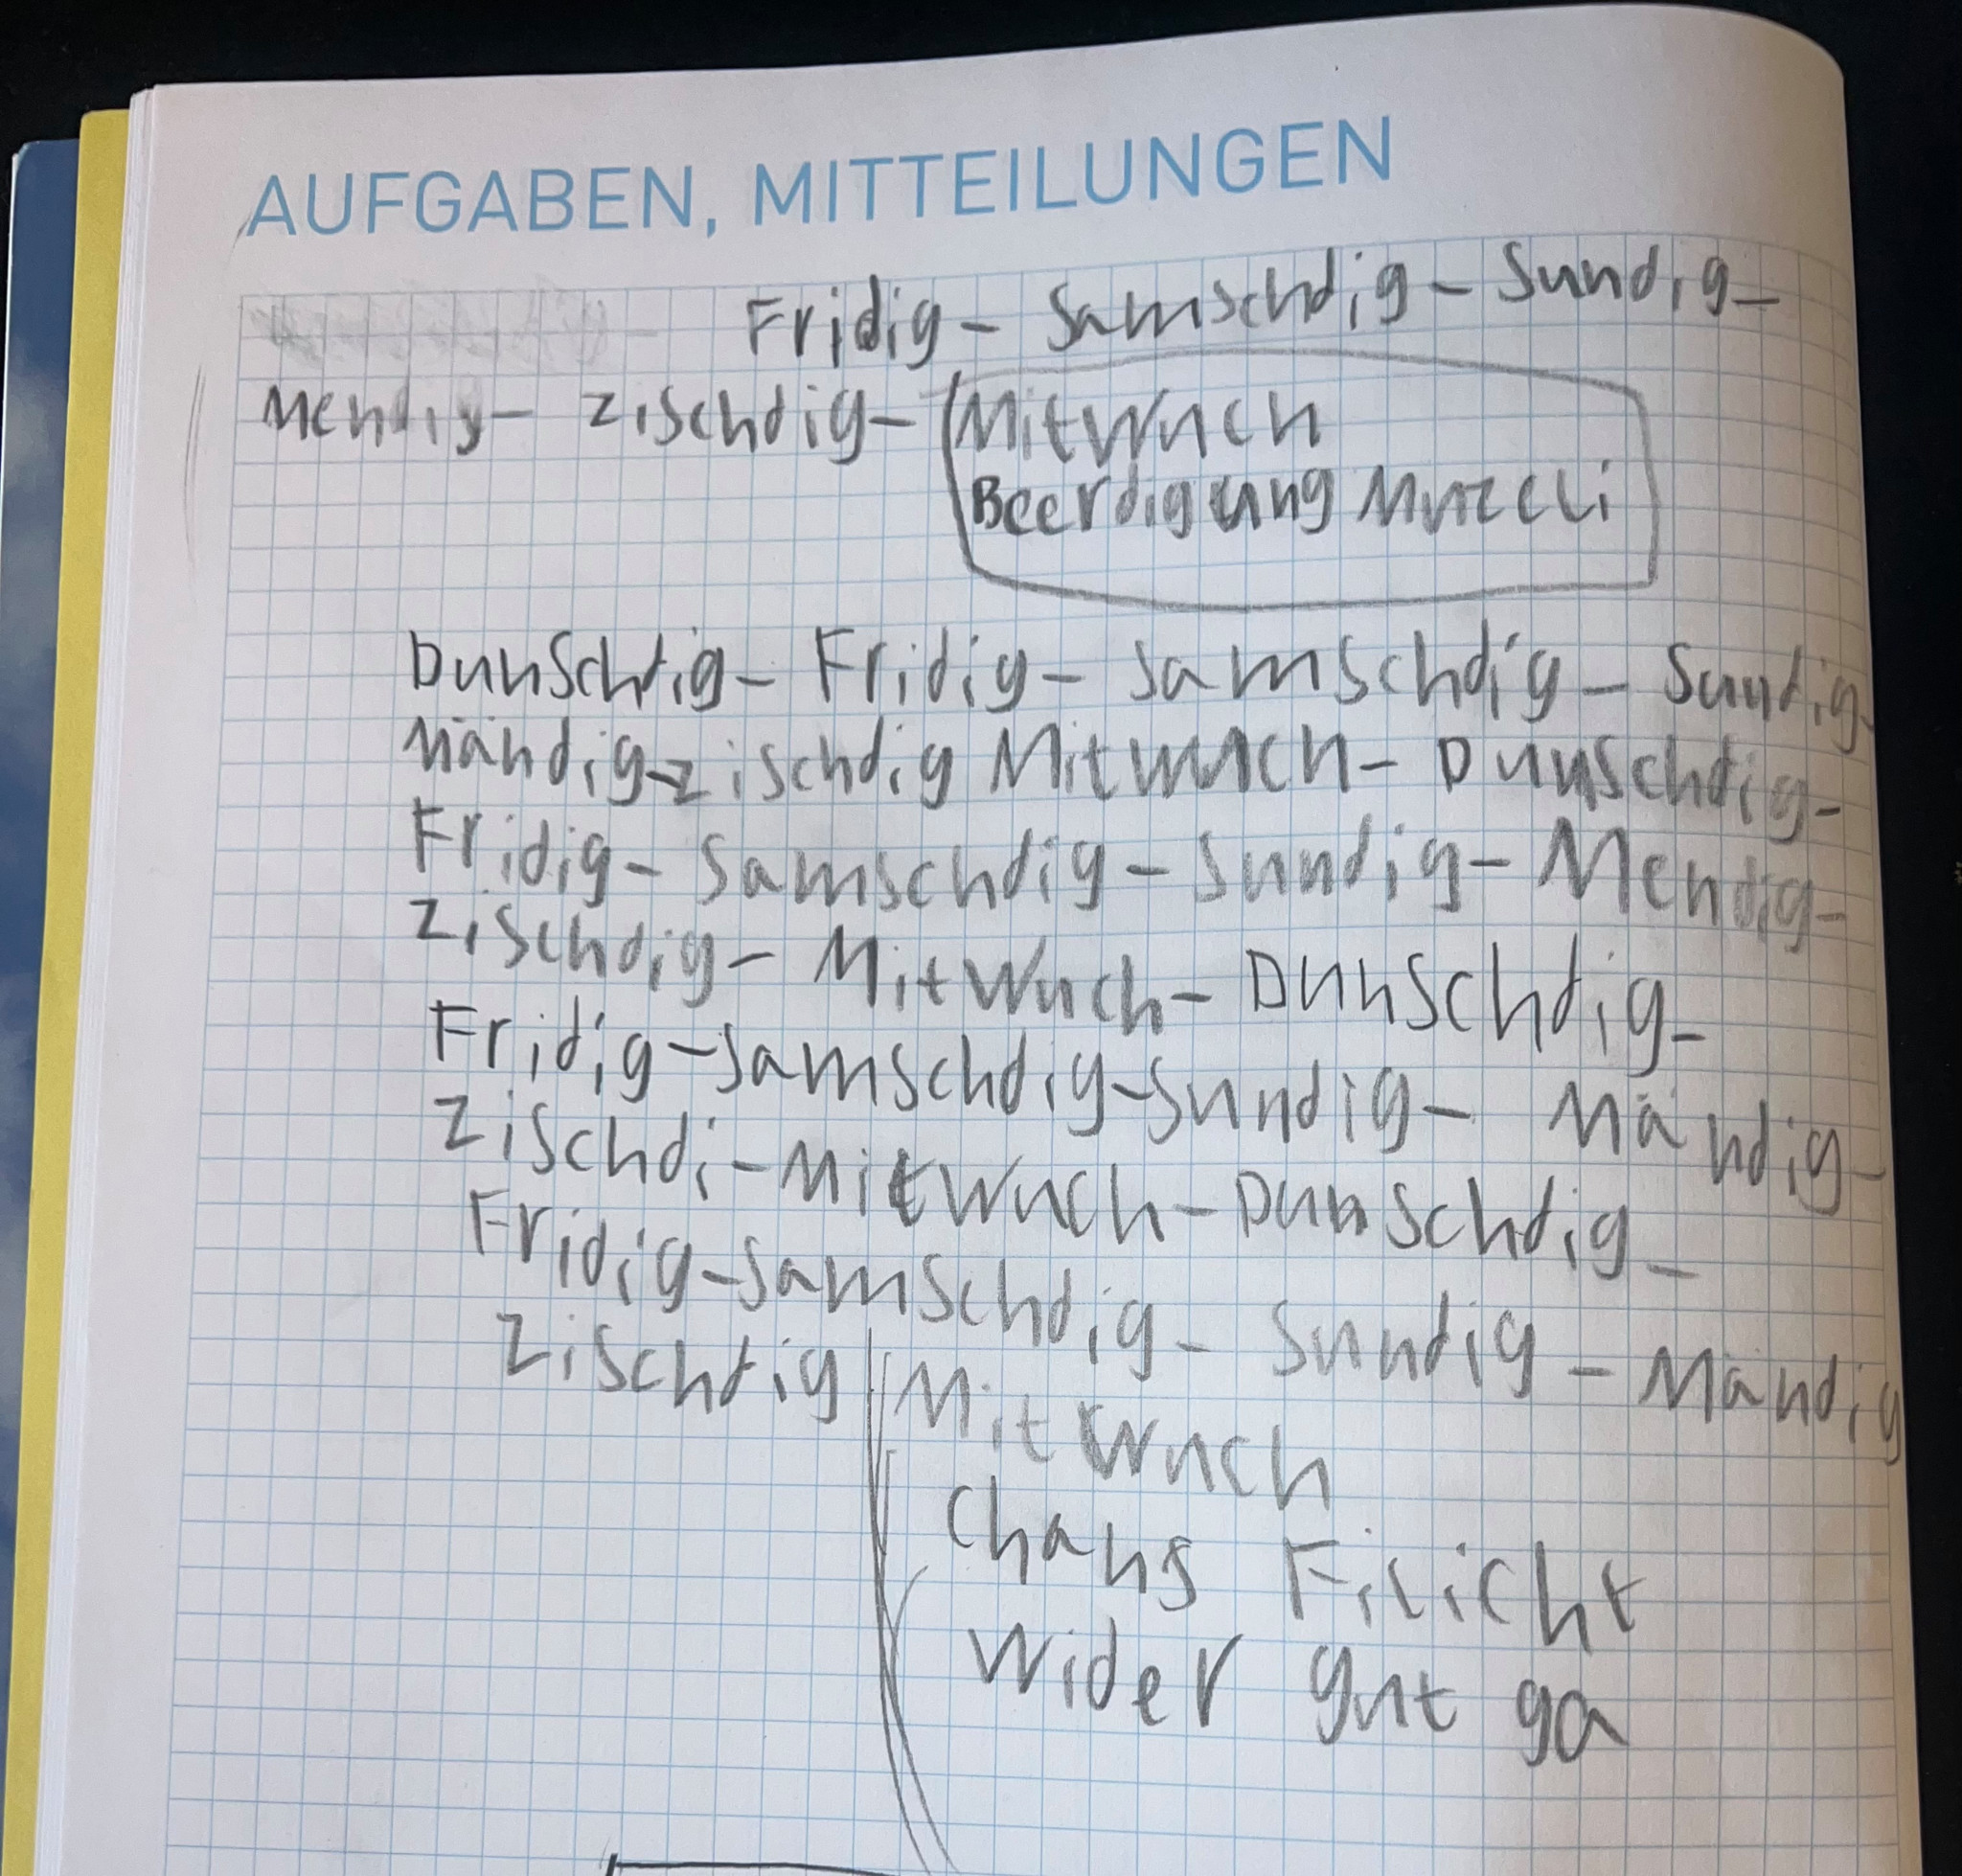 AUFGABEN, MITTEILUNGEN
Fridig - Samschdig - Sundig -
Mendig - Zischdig - Mitwuch
Beerdigung
Dunschtig - Fridig - Samschdig - Sundig -
Mändig - Zischdig Mitwuch - Dunschdig -
Fridig - Samschdig - Sundig - Mendig -
Zischdig - Mitwuch - Dunschdig -
Fridig - Samschdig - Sundig - Mändig -
Zischdi - Mitwuch - Dunschdig -
Fridig - Samschdig - Sundig - Mändig
Zischtig Mitwuch
Chans Filicht
Wider gut ga